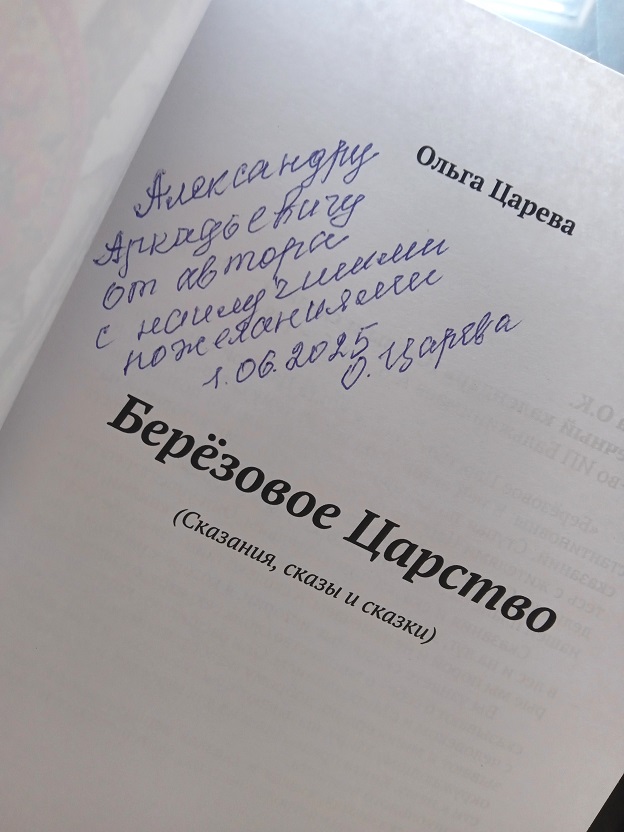 Ольга Царева
Александру
Аркадьевичу
от автора
с наилучшими
пожеланиями
1.06.2025
О. Царева
Берёзовое Царство
(Сказания, сказы и сказки)